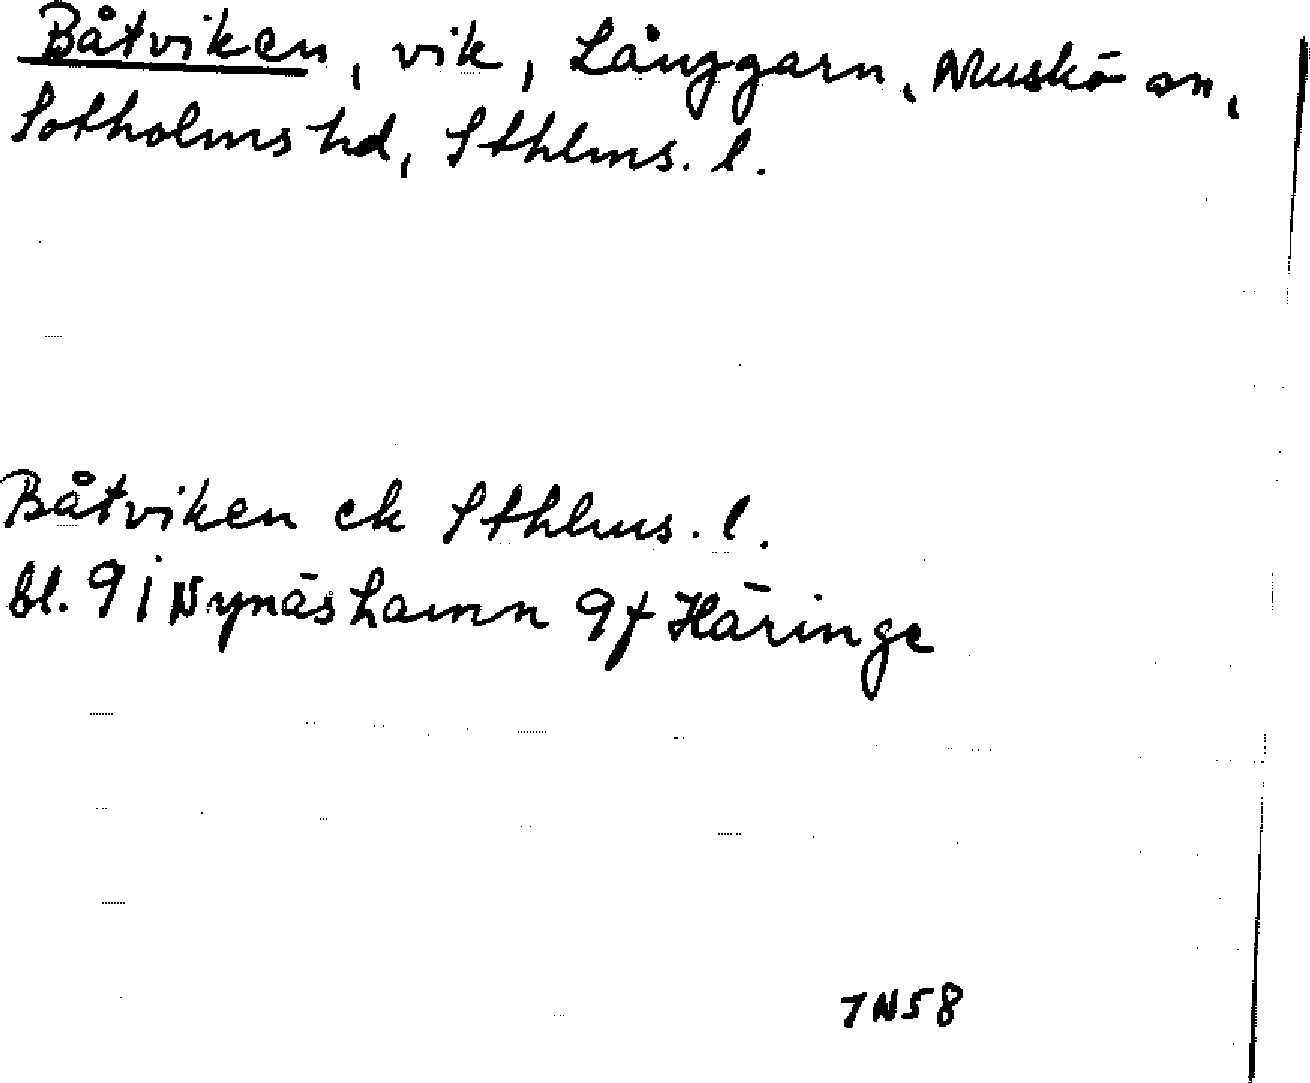 Båtviken, vik, Långgarn, Muskö sn,
Sotholms hd, Sthlms. l.
Båtviken ek Sthlms. l.
bl. 9 i Nynäshamn 9f Häringe
7N58